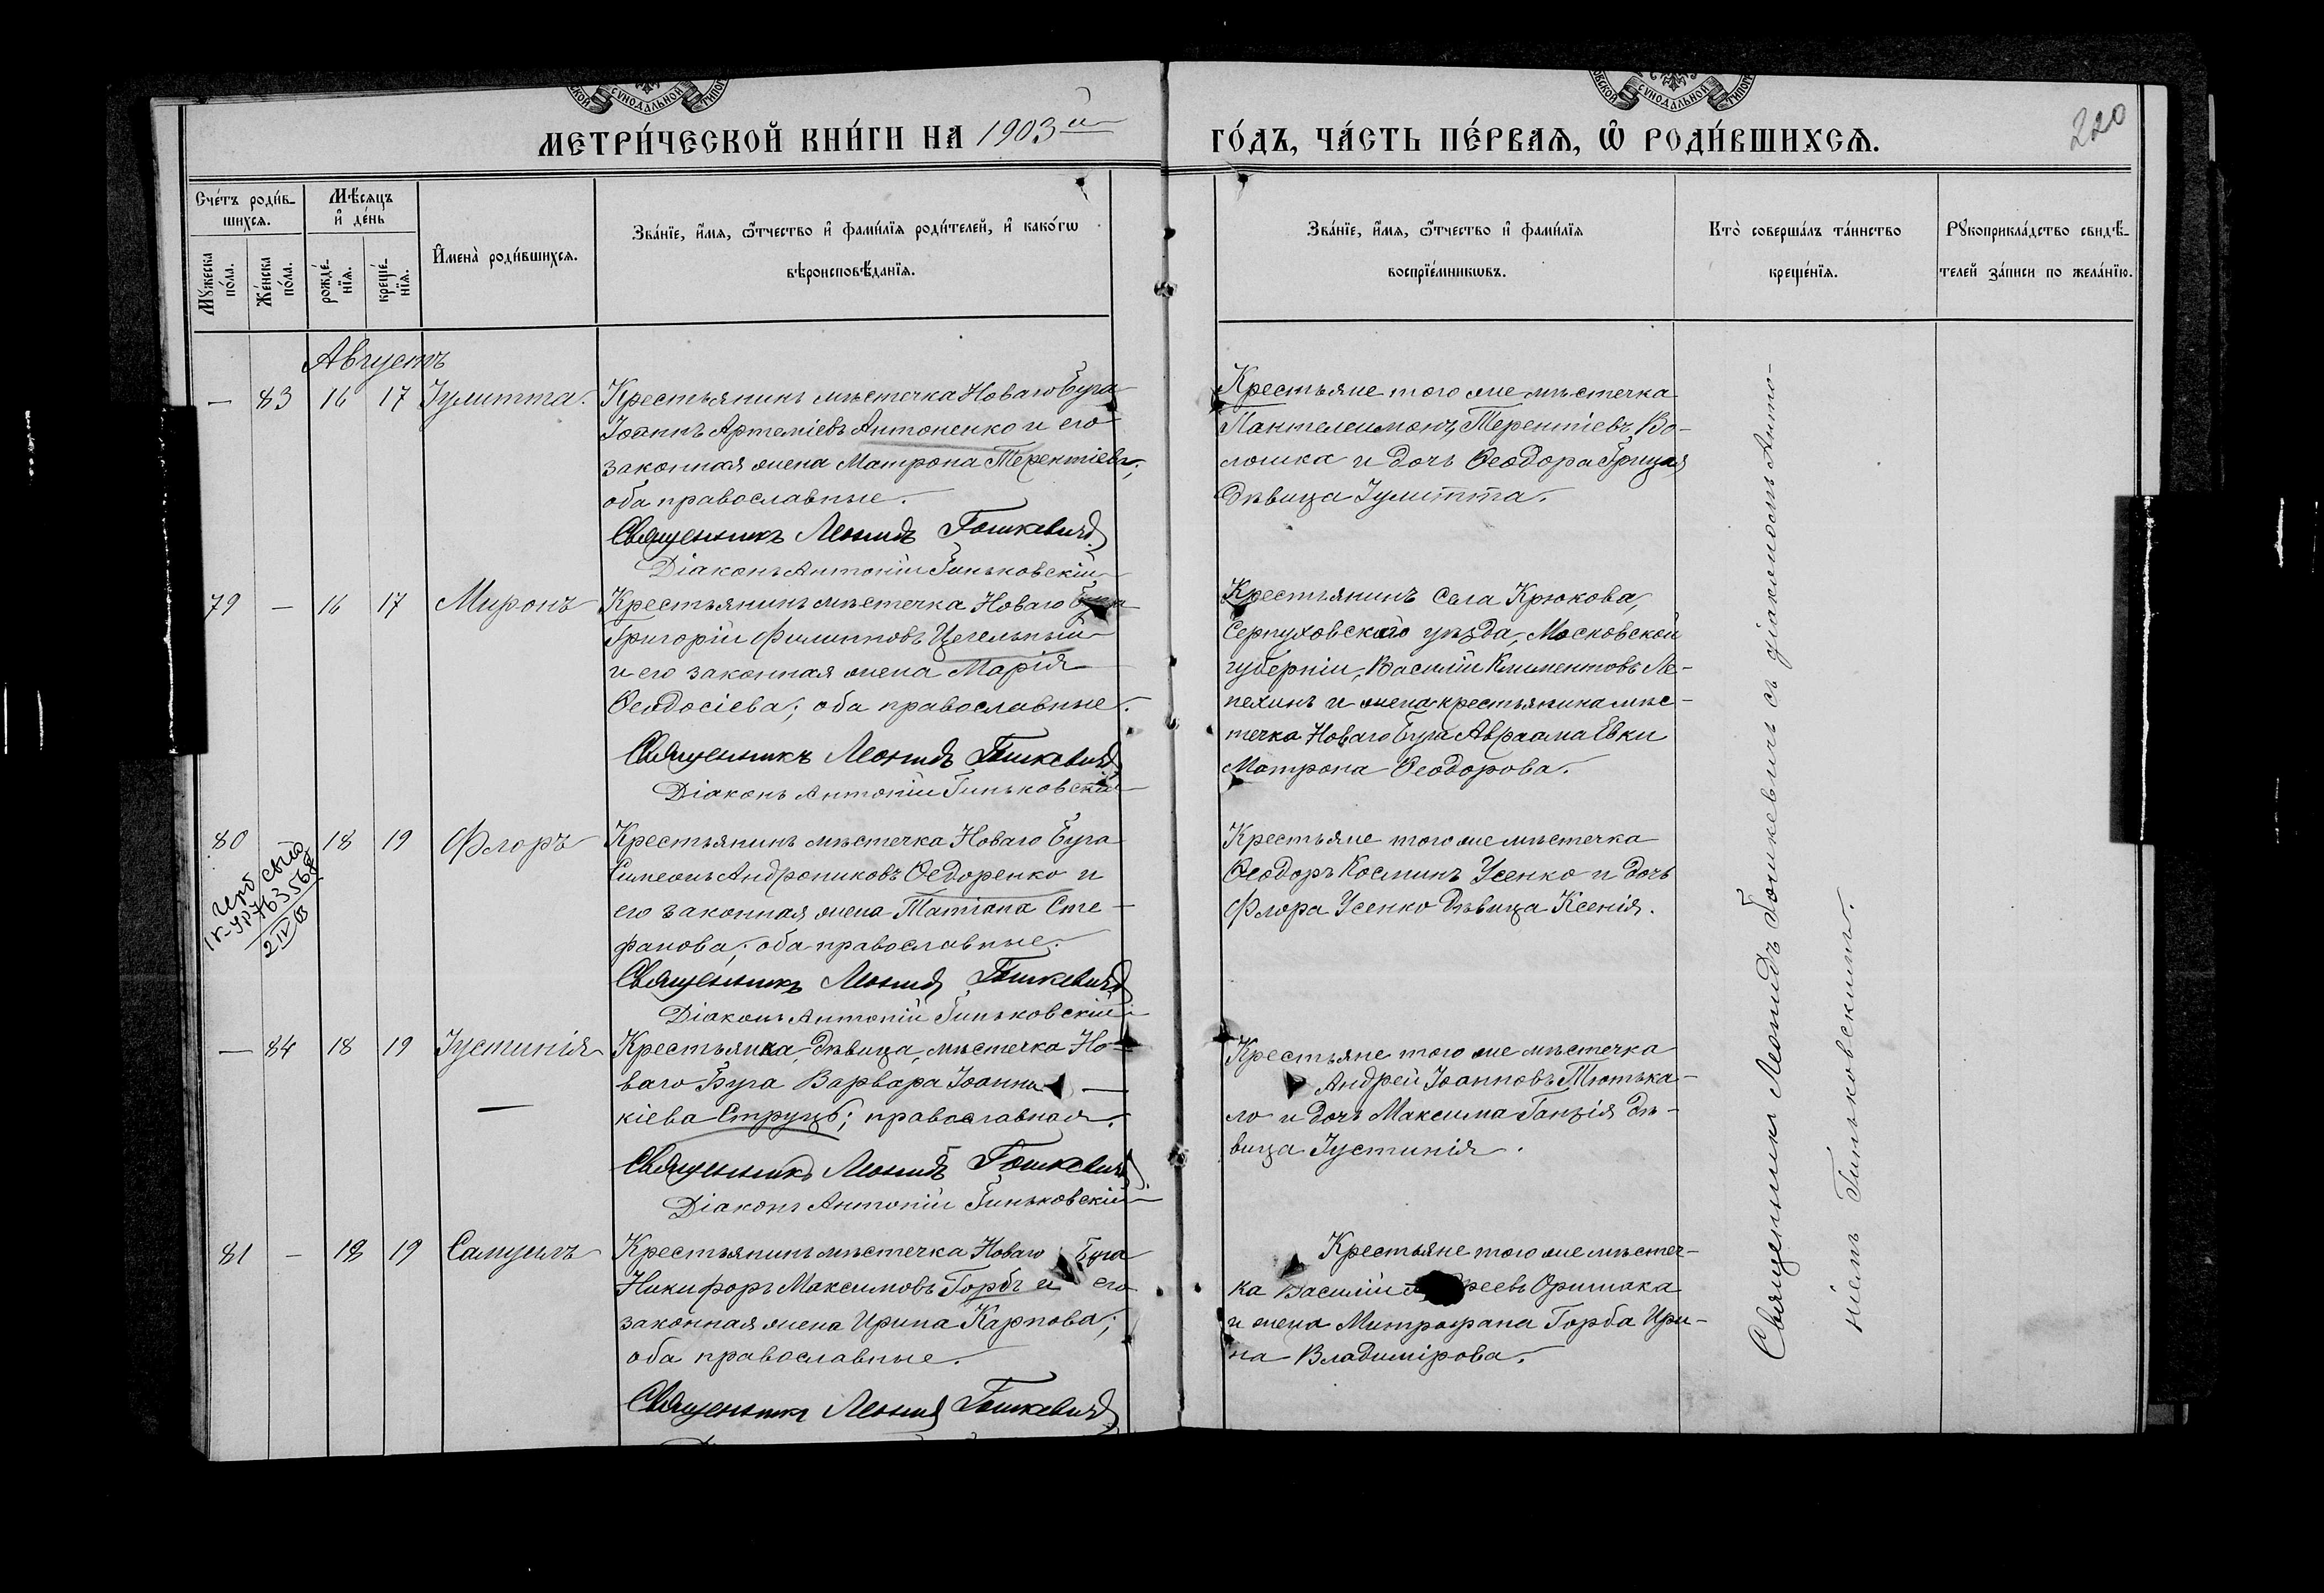 МЕТРИ́ЧЕСКОЙ КНИ́ГИ НА 1903й
ГО́ДЪ, ЧА́СТЬ ПЕ́РВАѦ, Ѡ҆ РОДИ́ВШИХСѦ.
220
Сче́тъ роди́в-
шихсѧ.
Мѣ́сѧцъ
и҆ де́нь
Мꙋ́жеска
по́ла.
Же́нска
по́ла.
рожде́-
нїѧ.
креще́-
нїѧ.
И҆мена̀ роди́вшихсѧ.
Зва́нїе, и҆́мѧ, ѻ҆́тчество и҆ фами́лїѧ роди́телей, и҆ како́гѡ
вѣроисповѣ́данїѧ.
Зва́нїе, и҆́мѧ, ѻ҆́тчество и҆ фами́лїѧ
воспрїе́мникѡвъ.
Кто̀ соверша́лъ та́инство
креще́нїѧ.
Рꙋкоприкла́дство свидѣ́-
телей за́писи по жела́нїю.
Августъ
— 83 16 17 Іулитта.
Крестьянинъ мѣстечка Новаго Буга
Іоаннъ Артеміевъ Антоненко и его
законная жена Матрона Терентіева;
оба православные.
Священникъ Леонидъ Гошкевичъ
Діаконъ Антоній Гиньковскій
Крестьяне того же мѣстечка
Пантелеимонъ Терентіевъ Во-
лошка и дочь Ѳеодора Грицая
дѣвица Іулитта.
79 — 16 17 Миронъ
Крестьянинъ мѣстечка Новаго Буга
Григорій Филипповъ Цегельный
и его законная жена Марія
Ѳеодосіева; оба православные.
Священникъ Леонидъ Гошкевичъ
Діаконъ Антоній Гиньковскій
Крестьянинъ села Крюкова,
Серпуховскаго уѣзда, Московской
губерніи, Василій Климентовъ Ле-
пехинъ и жена крестьянина мѣс-
течка Новаго Буга Авраама Евки
Матрона Ѳеодорова.
80 18 19 Флоръ
763568
Крестьянинъ мѣстечка Новаго Буга
Симеонъ Андрониковъ Ѳедоренко и
его законная жена Татіана Сте-
фанова; оба православные.
Священникъ Леонидъ Гошкевичъ
Діаконъ Антоній Гиньковскій
Крестьяне того же мѣстечка
Ѳеодоръ Косминъ Усенко и дочь
Флора Усенко дѣвица Ксенія.
— 84 18 19 Іустинія
—
Крестьянка, дѣвица, мѣстечка Но-
ваго Буга Варвара Іоанни —
кіева Струцъ; православная.
Священникъ Леонидъ Гошкевичъ
Діаконъ Антоній Гиньковскій
Крестьяне того же мѣстечка
Андрей Іоанновъ Тютька-
ло и дочь Максима Ганзія дѣ-
вица Іустинія.
81 — 18 19 Самуилъ
Крестьянинъ мѣстечка Новаго Буга
Никифоръ Максимовъ Горбъ и его
законная жена Ирина Карпова;
оба православные.
Священникъ Леонидъ Гошкевичъ
Крестьяне того же мѣстеч-
ка Василій реевъ Оришака
и жена Митрофана Горба Ири-
на Владимірова.
Священникъ Леонидъ Гошкевичъ съ діакономъ Анто-
ніемъ Гиньковскимъ.